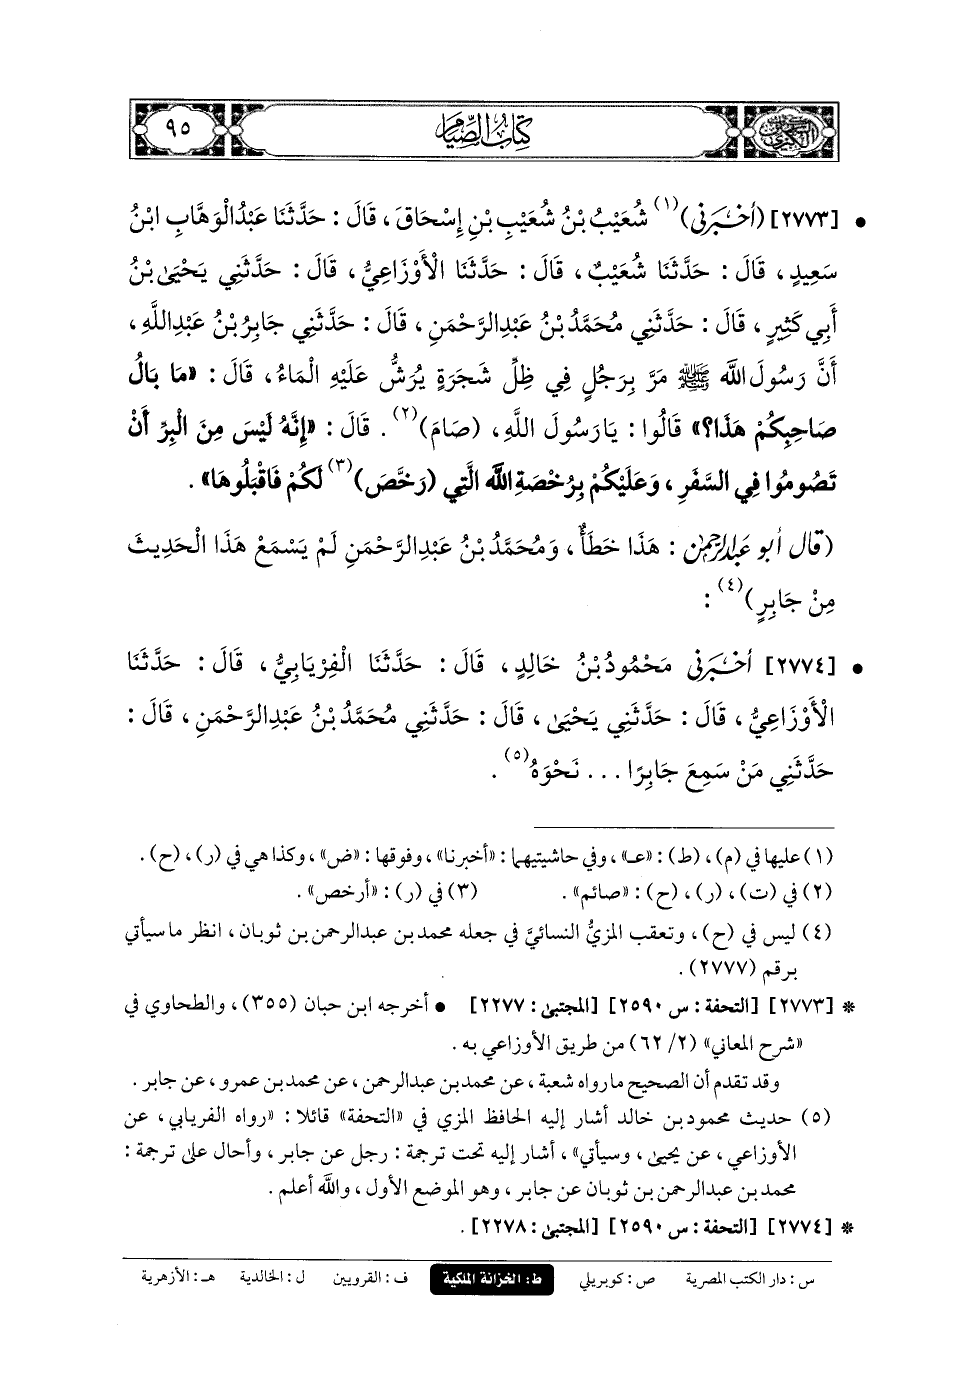 كتاب الصيام
٩٥
• [٢٧٧٣] (أَخْبَرَنِي)(١) شُعَيْبُ بْنُ شُعَيْبِ بْنِ إِسْحَاقَ، قَالَ: حَدَّثَنَا عَبْدُ الْوَهَّابِ ابْنُ
سَعِيدٍ، قَالَ: حَدَّثَنَا شُعَيْبٌ، قَالَ: حَدَّثَنَا الْأَوْزَاعِيُّ، قَالَ: حَدَّثَنِي يَحْيَىٰ بْنُ
أَبِي كَثِيرٍ، قَالَ: حَدَّثَنِي مُحَمَّدُ بْنُ عَبْدِ الرَّحْمَنِ، قَالَ: حَدَّثَنِي جَابِرُ بْنُ عَبْدِ اللَّهِ،
أَنَّ رَسُولَ اللَّهِ ﷺ مَرَّ بِرَجُلٍ فِي ظِلِّ شَجَرَةٍ يُرَشُّ عَلَيْهِ الْمَاءُ، قَالَ: «مَا بَالُ
صَاحِبِكُمْ هَذَا؟» قَالُوا: يَا رَسُولَ اللَّهِ، (صَامَ)(٢). قَالَ: «إِنَّهُ لَيْسَ مِنَ الْبِرِّ أَنْ
تَصُومُوا فِي السَّفَرِ، وَعَلَيْكُمْ بِرُخْصَةِ اللَّهِ الَّتِي (رَخَّصَ)(٣) لَكُمْ فَاقْبَلُوهَا».
(قال أبو عبد الرحمن: هَذَا خَطَأٌ، وَمُحَمَّدُ بْنُ عَبْدِ الرَّحْمَنِ لَمْ يَسْمَعْ هَذَا الْحَدِيثَ
مِنْ جَابِرٍ)(٤):
• [٢٧٧٤] أَخْبَرَنِي مَحْمُودُ بْنُ خَالِدٍ، قَالَ: حَدَّثَنَا الْفِرْيَابِيُّ، قَالَ: حَدَّثَنَا
الْأَوْزَاعِيُّ، قَالَ: حَدَّثَنِي يَحْيَىٰ، قَالَ: حَدَّثَنِي مُحَمَّدُ بْنُ عَبْدِ الرَّحْمَنِ، قَالَ:
حَدَّثَنِي مَنْ سَمِعَ جَابِرًا... نَحْوَهُ(٥).
(١) عليها في (م)، (ط): «عـ»، وفي حاشيتيهما: «أخبرنا»، وفوقها: «ض»، وكذا هي في (ر)، (ح).
(٢) في (ت)، (ر)، (ح): «صائم». (٣) في (ر): «أرخص».
(٤) ليس في (ح)، وتعقب المزيُّ النسائيَّ في جعله محمد بن عبدالرحمن بن ثوبان، انظر ما سيأتي
برقم (٢٧٧٧).
* [٢٧٧٣] [التحفة: س ٢٥٩٠] [المجتبى: ٢٢٧٧] • أخرجه ابن حبان (٣٥٥)، والطحاوي في
«شرح المعاني» (٢/ ٦٢) من طريق الأوزاعي به.
وقد تقدم أن الصحيح ما رواه شعبة، عن محمد بن عبدالرحمن، عن محمد بن عمرو، عن جابر.
(٥) حديث محمود بن خالد أشار إليه الحافظ المزي في «التحفة» قائلا: «رواه الفريابي، عن
الأوزاعي، عن يحيى، وسيأتي»، أشار إليه تحت ترجمة: رجل عن جابر، وأحال على ترجمة:
محمد بن عبدالرحمن بن ثوبان عن جابر، وهو الموضع الأول، والله أعلم.
* [٢٧٧٤] [التحفة: س ٢٥٩٠] [المجتبى: ٢٢٧٨].
س: دار الكتب المصرية ص: كوبريلي ط: الخزانة الملكية ف: القرويين ل: الخالدية هـ: الأزهرية